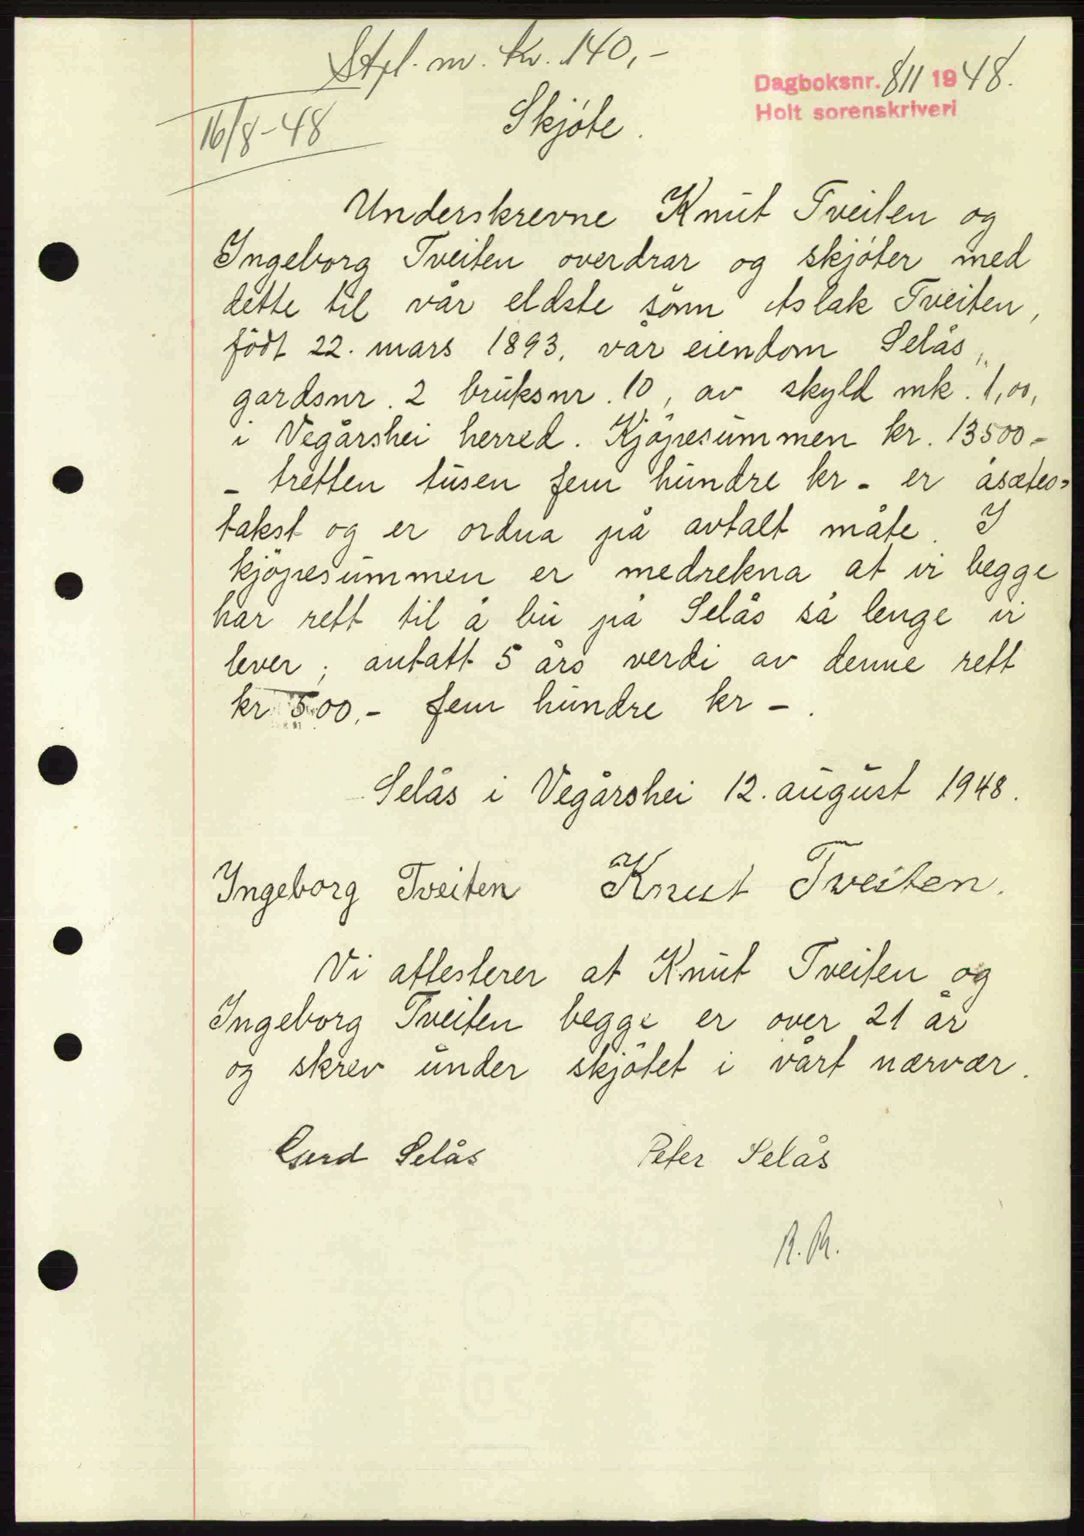 Stpl. m. kr. 140,-
Dagboksnr. 811 1948.
Holt sorenskriveri
16/8-48
Skjøte.
Underskrevne Knut Tveiten og
Ingeborg Tveiten overdrar og skjøter med
dette til vår eldste sønn Aslak Tveiten,
født 22. mars 1893, vår eiendom Selås,
gardsnr. 2 bruksnr. 10, av skyld mk. 1,00,
i Vegårshei herred. Kjøpesummen kr. 13500-
- tretten tusen fem hundre kr - er åsætes-
takst og er ordna på avtalt måte. I
kjøpesummen er medrekna at vi begge
har rett til å bu på Selås så lenge vi
lever; antatt 5 års verdi av denne rett
kr 500.- fem hundre kr -.
Selås i Vegårshei 12. august 1948.
Ingeborg Tveiten Knut Tveiten.
Vi attesterer at Knut Tveiten og
Ingeborg Tveiten begge er over 21 år
og skrev under skjøtet i vårt nærvær.
Gerd Selås Peter Selås